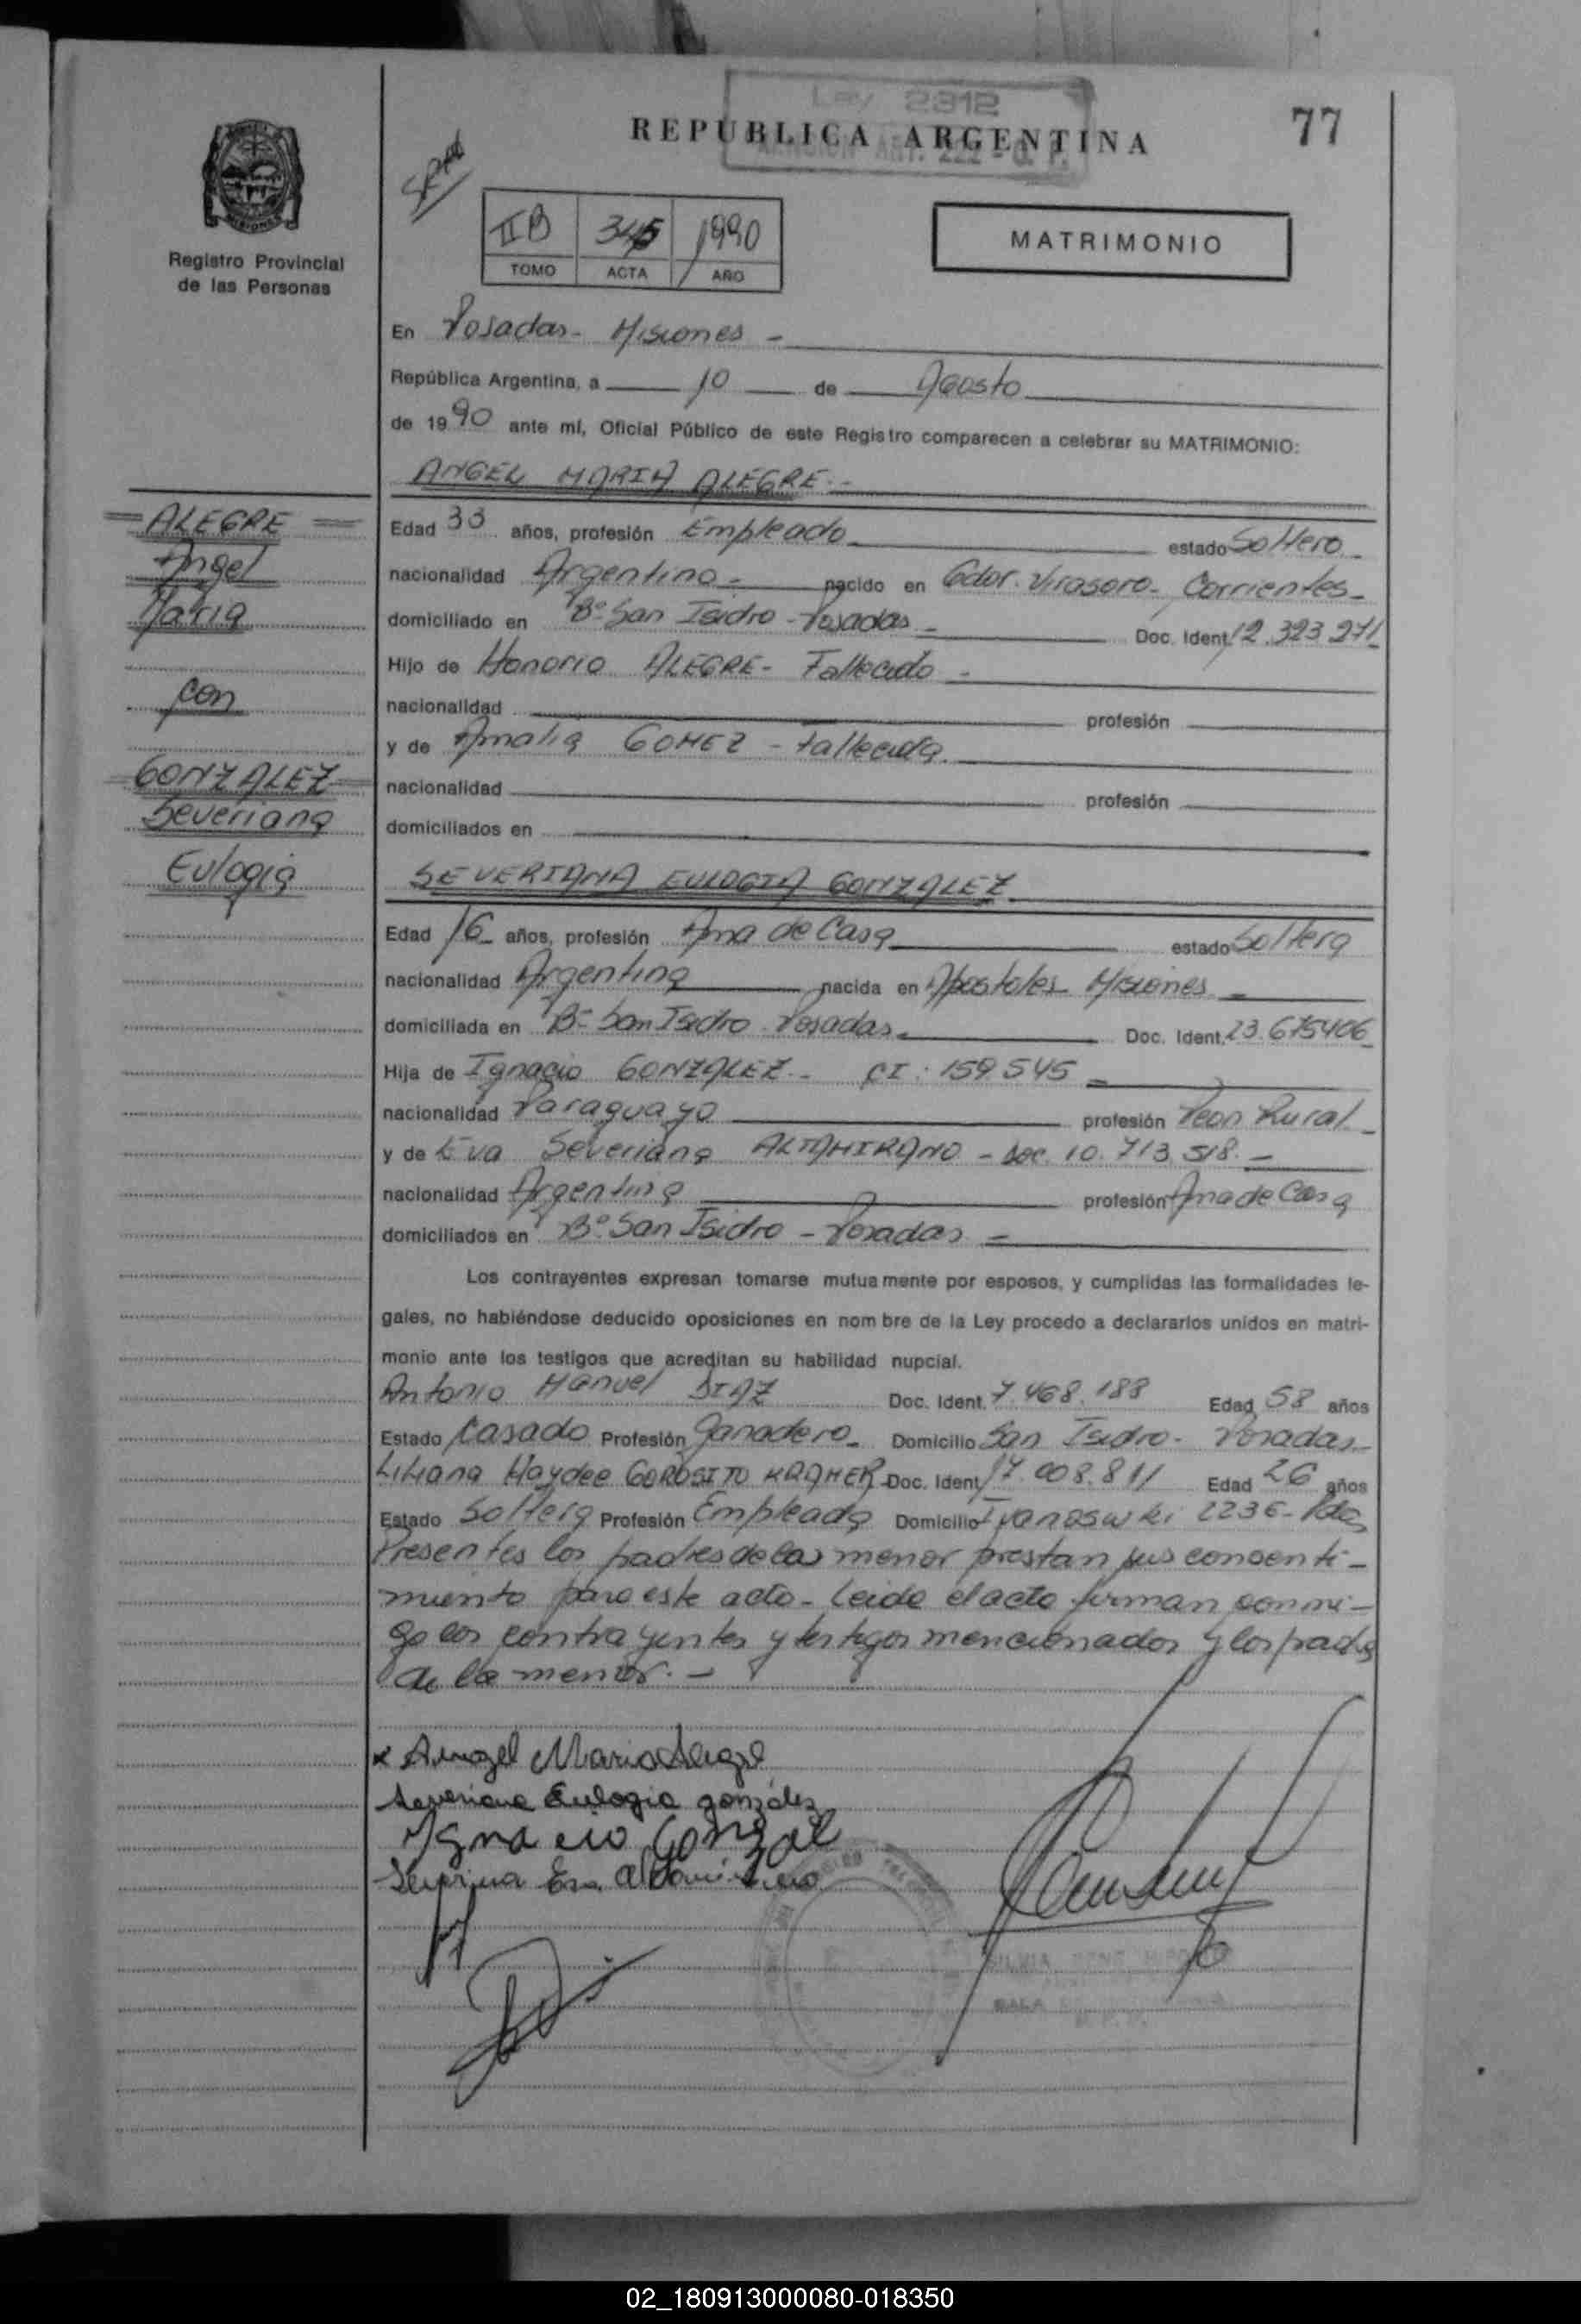 Ley 2312
77
REPUBLICA ARGENTINA
ART. 222 -
MISIONES
Registro Provincial
de las Personas
II B 345 1990
TOMO ACTA AÑO
MATRIMONIO
En Posadas - Misiones -
República Argentina, a 10 de Agosto
de 1990 ante mí, Oficial Público de este Registro comparecen a celebrar su MATRIMONIO:
ANGEL MARIA ALEGRE.-
Edad 33 años, profesión Empleado estado Soltero
nacionalidad Argentino - nacido en Gdor. Virasoro - Corrientes -
domiciliado en Bº San Isidro - Posadas - Doc. Ident. 12.323 271
Hijo de Honorio ALEGRE - Fallecido -
nacionalidad profesión
y de Amalia GOMEZ - fallecida.
nacionalidad profesión
domiciliados en
ALEGRE
Angel
Maria
con
GONZALEZ
Severiana
Eulogia
SEVERIANA EULOGIA GONZALEZ
Edad 16 años, profesión Ama de Casa estado Soltera
nacionalidad Argentina nacida en Apostoles Misiones -
domiciliada en Bº San Isidro Posadas. Doc. Ident. 23.675406
Hija de Ignacio GONZALEZ.- CI: 159.545 -
nacionalidad Paraguayo profesión Peon Rural -
y de Eva Severiana ALTAMIRANO - Doc. 10.713.518. -
nacionalidad Argentina profesión Ama de Casa
domiciliados en Bº San Isidro - Posadas -
Los contrayentes expresan tomarse mutuamente por esposos, y cumplidas las formalidades le-
gales, no habiéndose deducido oposiciones en nom bre de la Ley procedo a declararlos unidos en matri-
monio ante los testigos que acreditan su habilidad nupcial.
Antonio Manuel DIAZ Doc. Ident. 7.468.188 Edad 58 años
Estado Casado Profesión Ganadero - Domicilio San Isidro - Posadas -
Liliana Haydee GOROSITO KRAMER Doc. Ident. 17.008.811 Edad 26 años
Estado Soltera Profesión Empleada Domicilio Ivanoswki 2236 - Pdas
Presentes los padres de la menor prestan sus consenti-
miento para este acto - Leida el acta firman conmi-
go los contrayentes y testigos mencionados y los padres
de la menor. -
x Angel Maria Alegre
Severiana Eulogia gonzález
Ignacio Gonzal
02_180913000080-018350